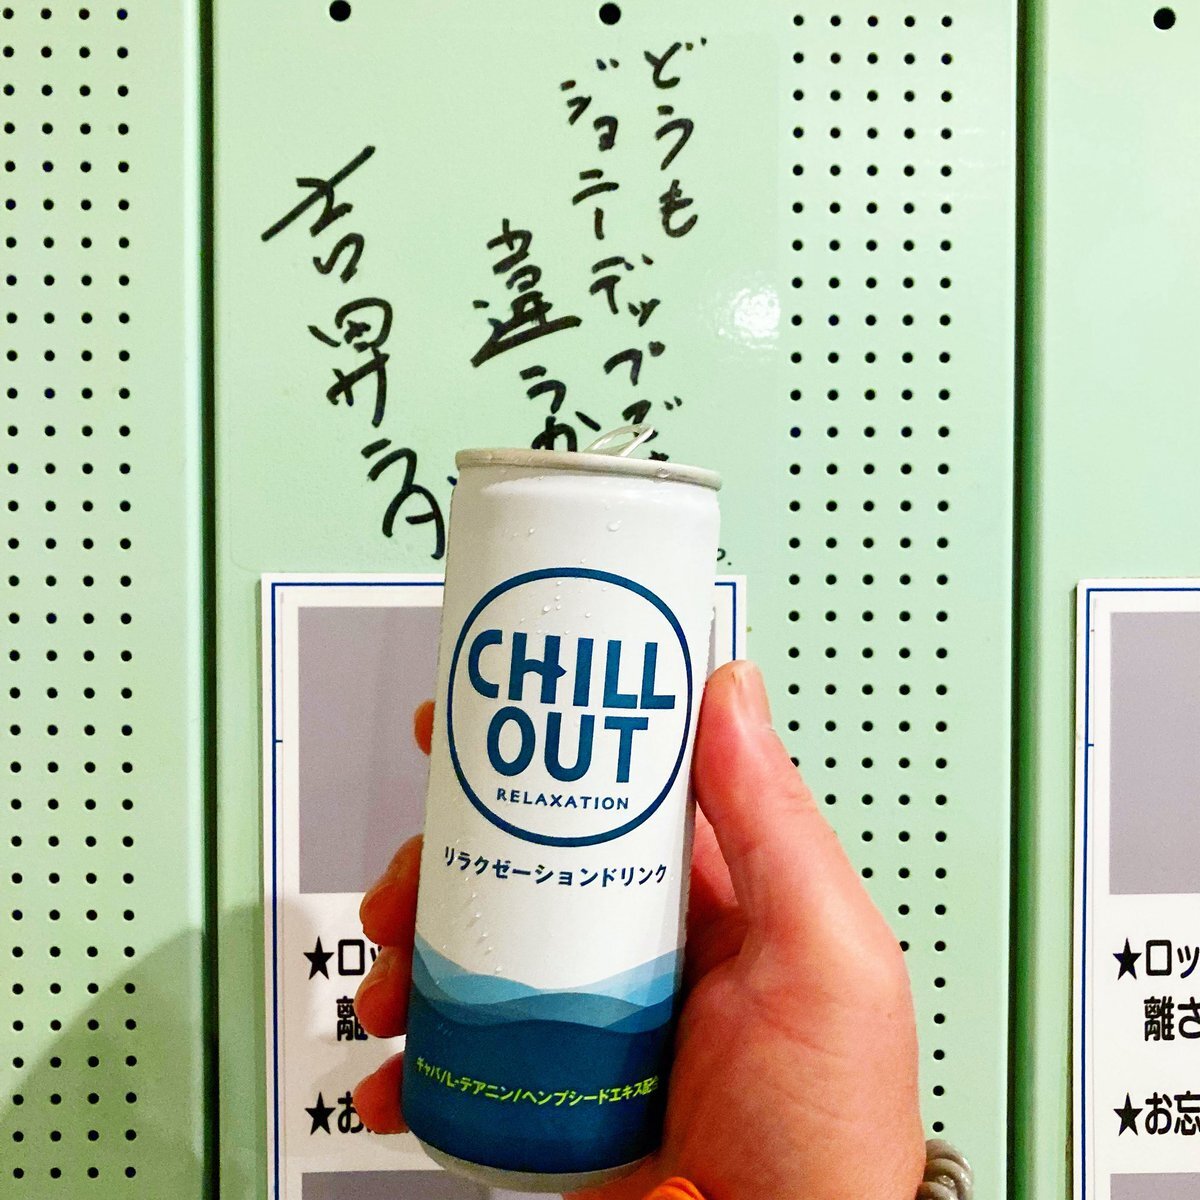 どうも
ジョニーデップです
違うか
吉田サラダ
CHILL
OUT
RELAXATION
リラクゼーションドリンク
ギャバ/L-テアニン/ヘンプシードエキス配合
★ロッ
離
★お
★ロッ
離さ
★お忘